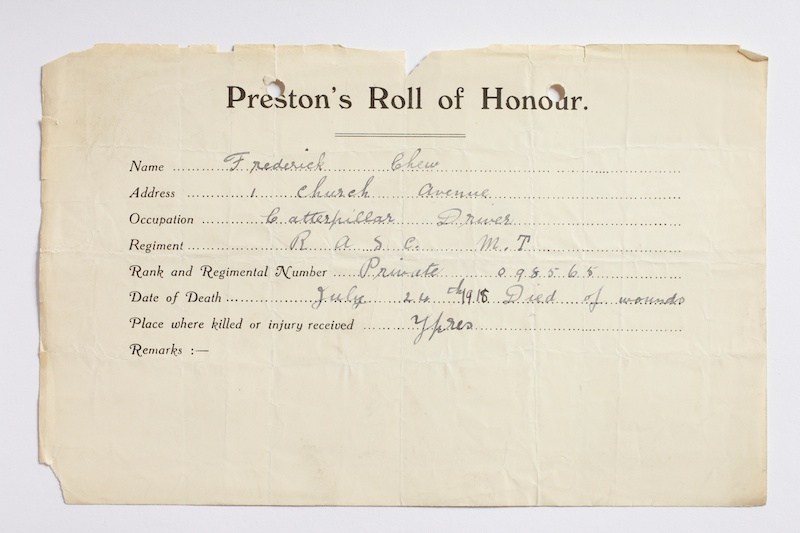 Preston's Roll of Honour.
Name Frederick Chew
Address 1 Church Avenue
Occupation Catterpillar Driver
Regiment R A S C. M.T
Rank and Regimental Number Private 098565
Date of Death July 24th 1918 Died of wounds
Place where killed or injury received Ypres
Remarks :—